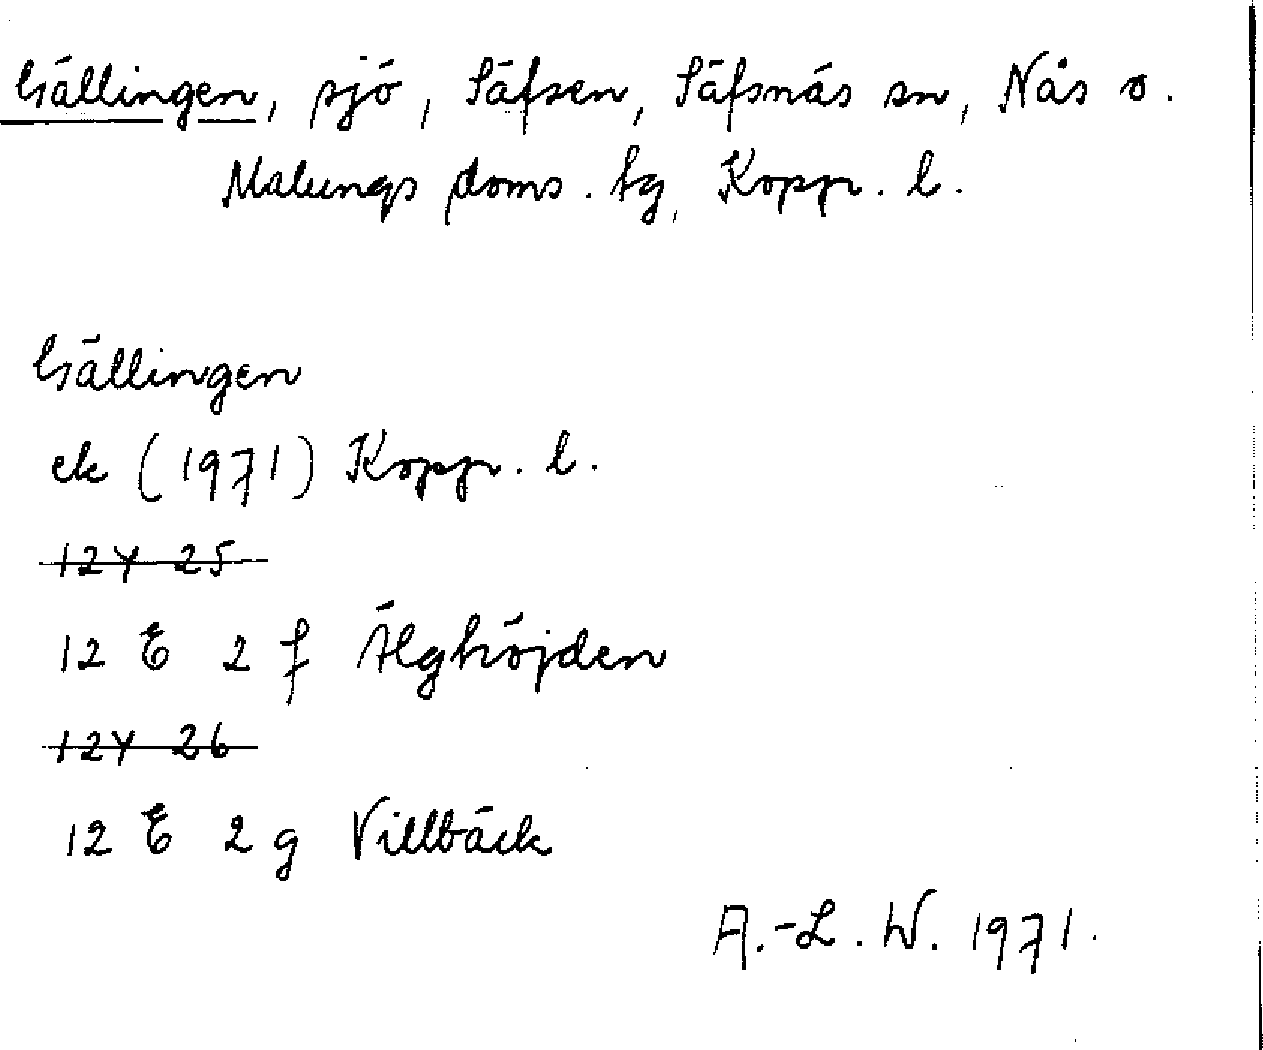 Gällingen, sjö, Säfsen, Säfsnäs sn, Nås o.
Malungs doms. tg, Kopp. l.
Gällingen
ek (1971) Kopp. l.
12Y 25
12 E 2 f Älghöjden
12Y 26
12 E 2 g Villbäck
A.-L. W. 1971.